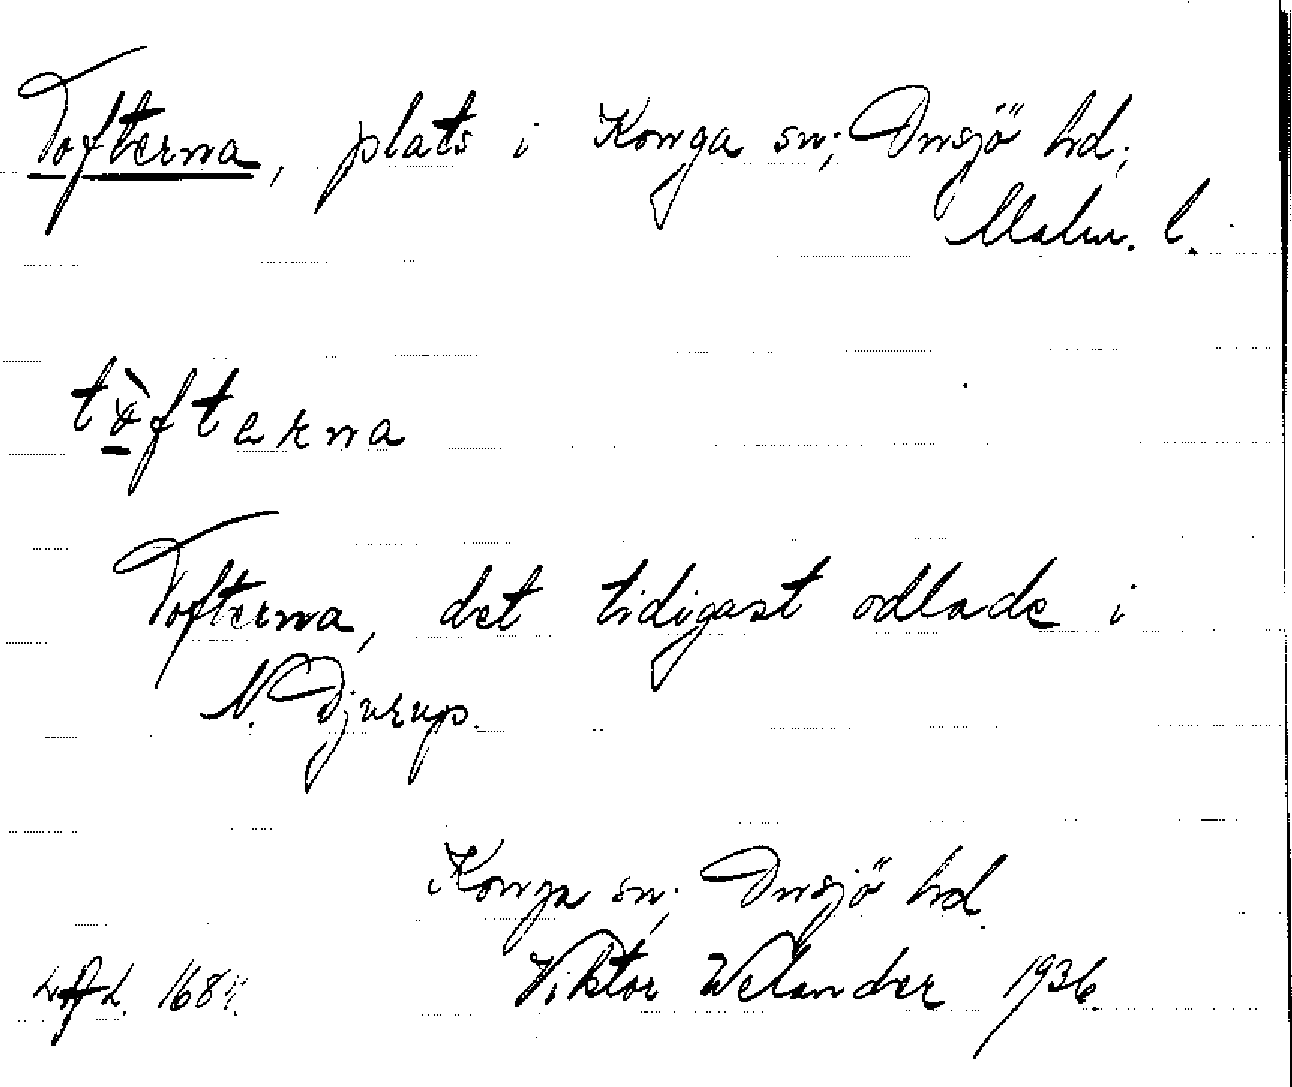 Tofterna, plats i Konga sn; Onsjö hd;
Malm. l.
Tofterna, det tidigast odlade i
N. Djurup.
Konga sn; Onsjö hd.
Viktor Welander 1936.